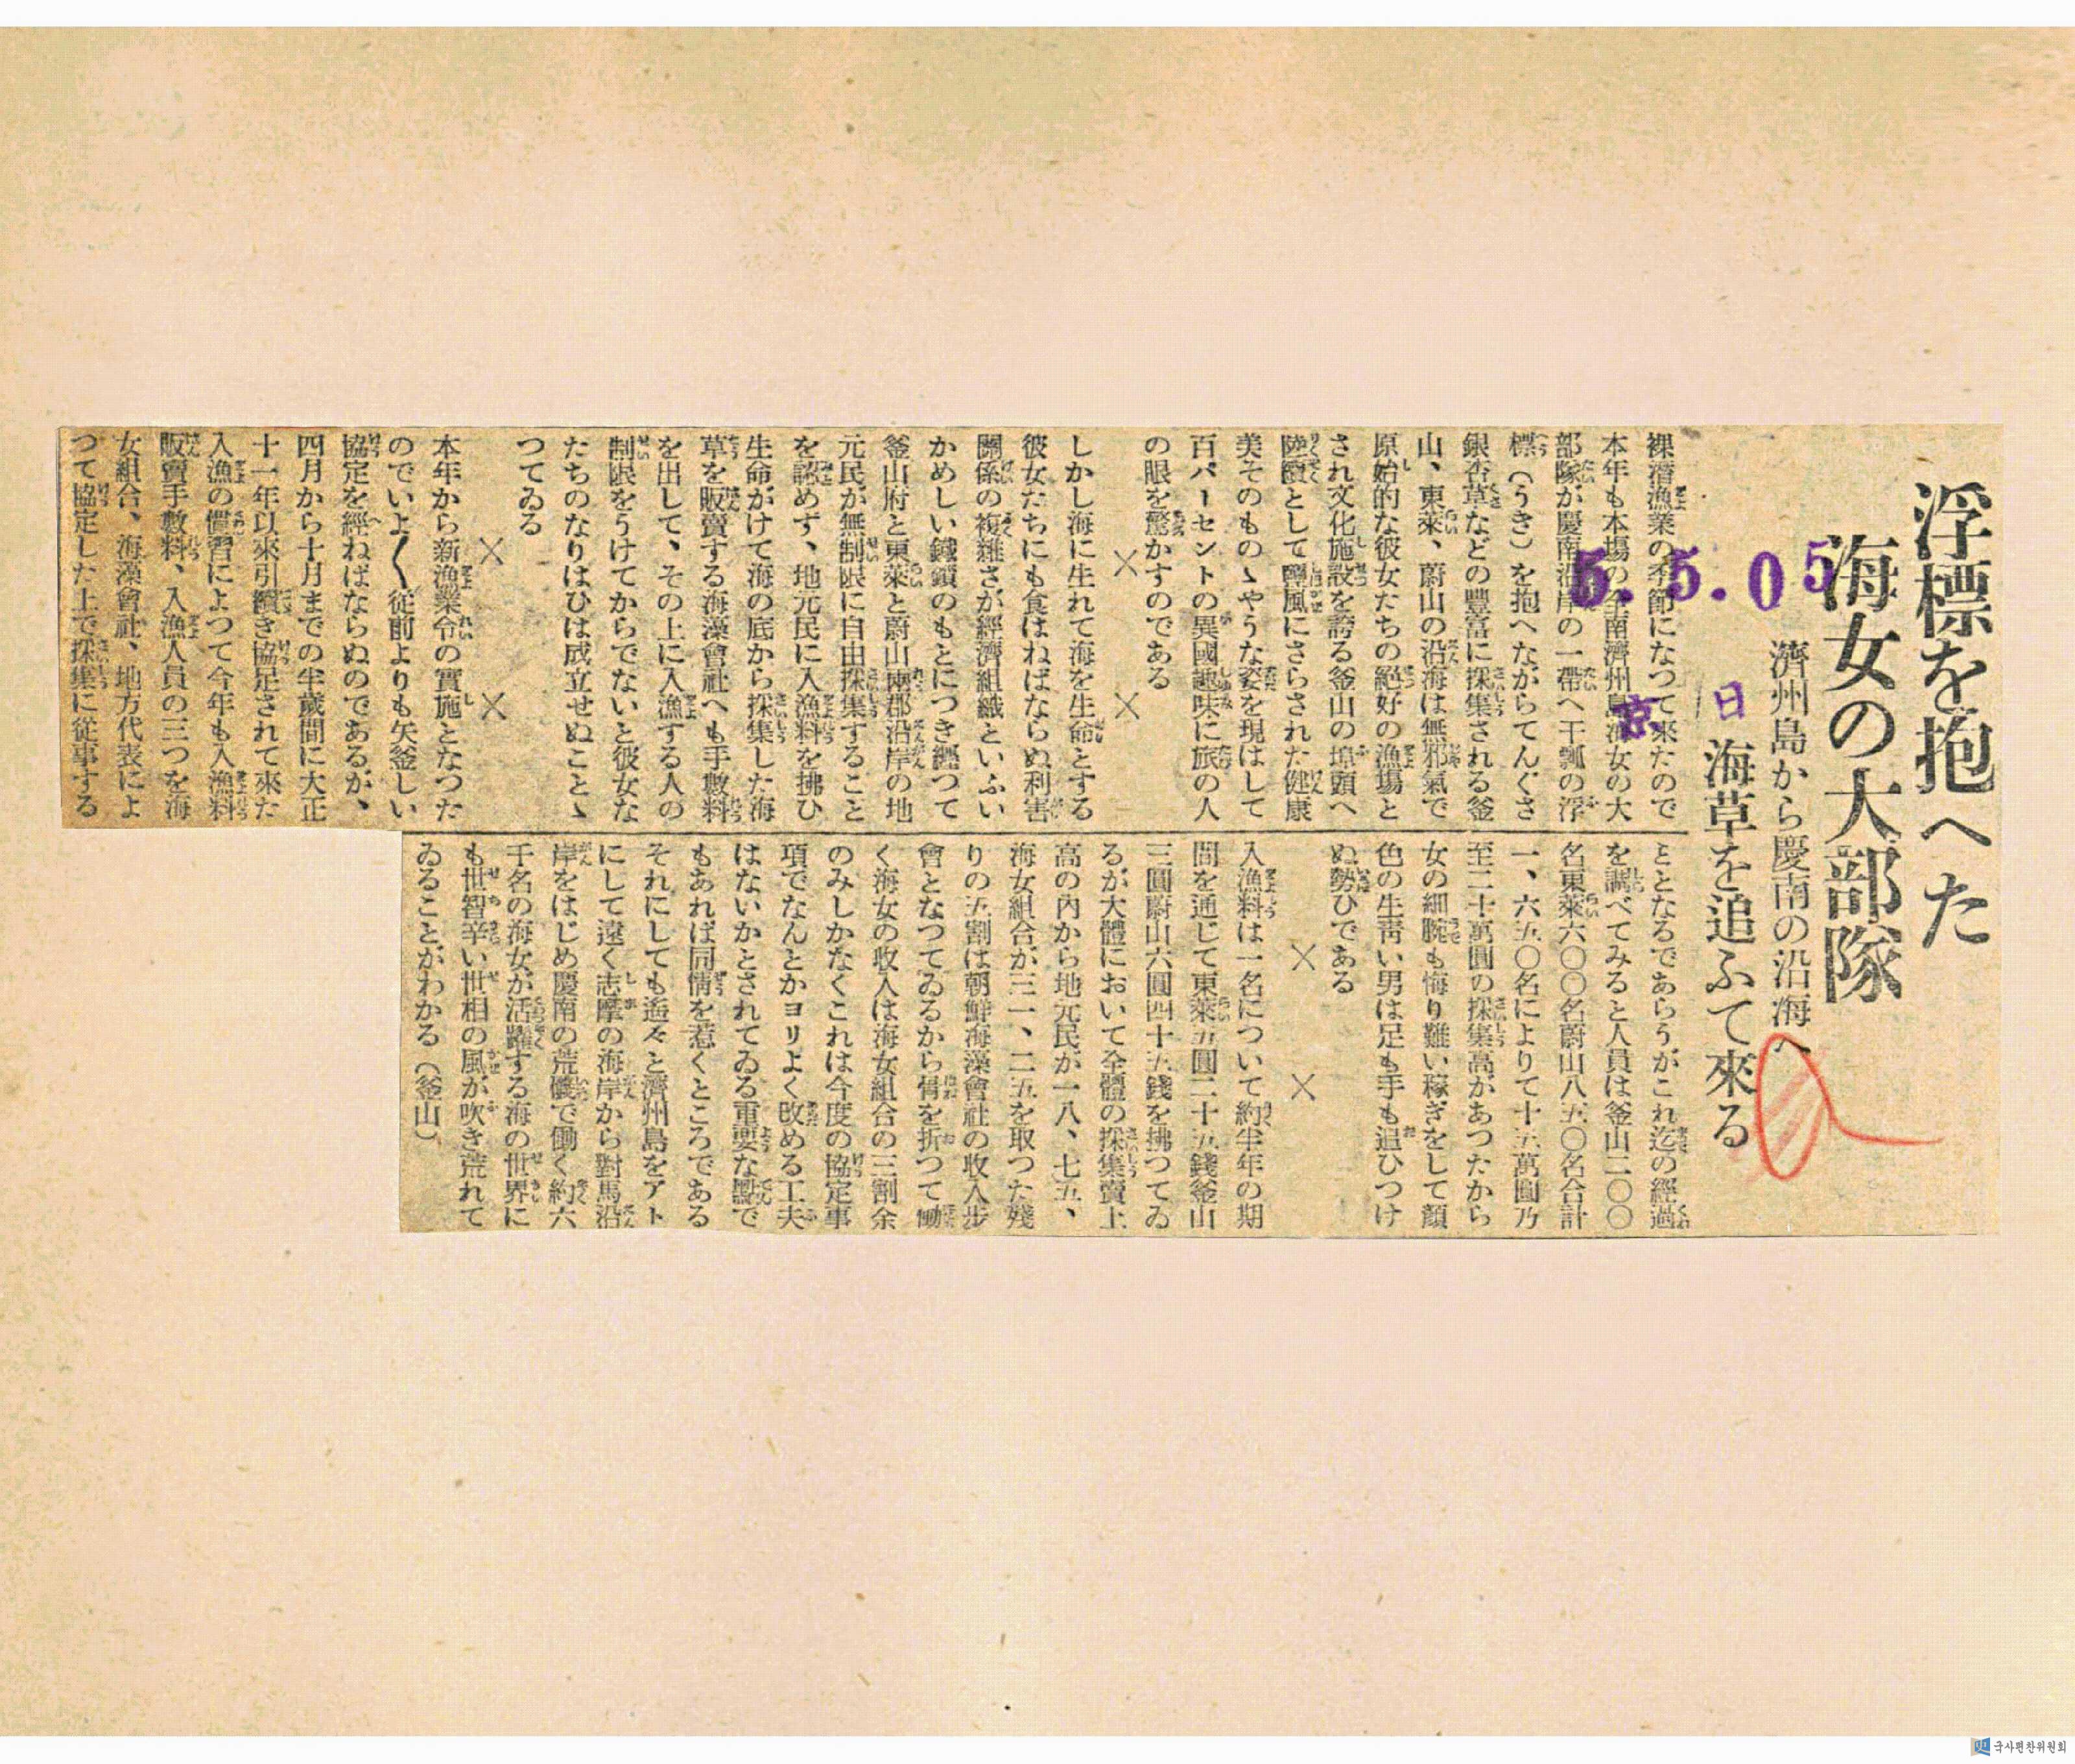 浮標を抱へた
海女の大部隊
濟州島から慶南の沿海へ
海草を追ふて來る
5.5.05
京
日
裸潛漁業の季節になつて來たので
本年も本場の全南濟州島海女の大
部隊が慶南沿岸の一帶へ干瓢の浮
標(うき)を抱へながらてんぐさ
銀杏草などの豐富に採集される釜
山、東萊、蔚山の沿海は無邪氣で
原始的な彼女たちの絕好の漁場と
され文化施設を誇る釜山の埠頭へ
陸續として潮風にさらされた健康
美そのものゝやうな姿を現はして
百パーセントの異國趣味に旅の人
の眼を驚かすのである
× ×
しかし海に生れて海を生命とする
彼女たちにも食はねばならぬ利害
關係の複雜さが經濟組織といふい
かめしい鐵鎖のもとにつき纒つて
釜山府と東萊と蔚山兩郡沿岸の地
元民が無制限に自由採集すること
を認めず、地元民に入漁料を拂ひ
生命がけて海の底から採集した海
草を販賣する海藻會社へも手數料
を出して、その上に入漁する人の
制限をうけてからでないと彼女な
たちのなりはひは成立せぬことゝ
つてゐる
× ×
本年から新漁業令の實施となつた
のでいよ〱從前よりも矢釜しい
協定を經ねばならぬのであるが、
四月から十月までの半歲間に大正
十一年以來引續き協定されて來た
入漁の慣習によつて今年も入漁料
販賣手數料、入漁人員の三つを海
女組合、海藻會社、地方代表によ
つて協定した上で採集に從事する
ととなるであらうがこれ迄の經過
を調べてみると人員は釜山二〇〇
名東萊六〇〇名蔚山八五〇名合計
一、六五〇名によりて十五萬圓乃
至二十萬圓の採集高があつたから
女の細腕も侮り難い稼ぎをして顔
色の生靑い男は足も手も追ひつけ
ぬ勢ひである
× ×
入漁料は一名について約半年の期
間を通じて東萊五圓二十五錢釜山
三圓蔚山六圓四十五錢を拂つてゐ
るが大體において全體の採集賣上
高の內から地元民が一八、七五、
海女組合が三一、二五を取つた殘
りの五割は朝鮮海藻會社の收入步
會となつてゐるから骨を折つて働
く海女の收入は海女組合の三割余
のみしかなくこれは今度の協定事
項でなんとかヨリよく改める工夫
はないかとされてゐる重要な點で
もあれば同情を惹くところである
それにしても遙々と濟州島をアト
にして遠く志摩の海岸から對馬沿
岸をはじめ慶南の荒磯で働く約六
千名の海女が活躍する海の世界に
も世智辛い世相の風が吹き荒れて
ゐることがわかる(釜山)
국사편찬위원회